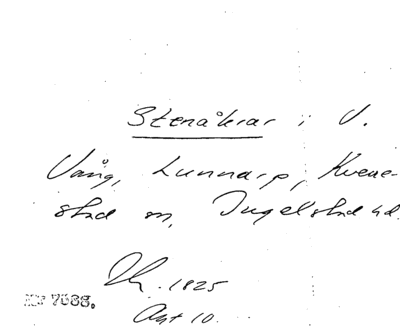 Stenåkrar i V.
Vång, Lunnarp, Kvene-
stad m, Ingelstad hd.
1825
Akt 10.
Nr 7688.